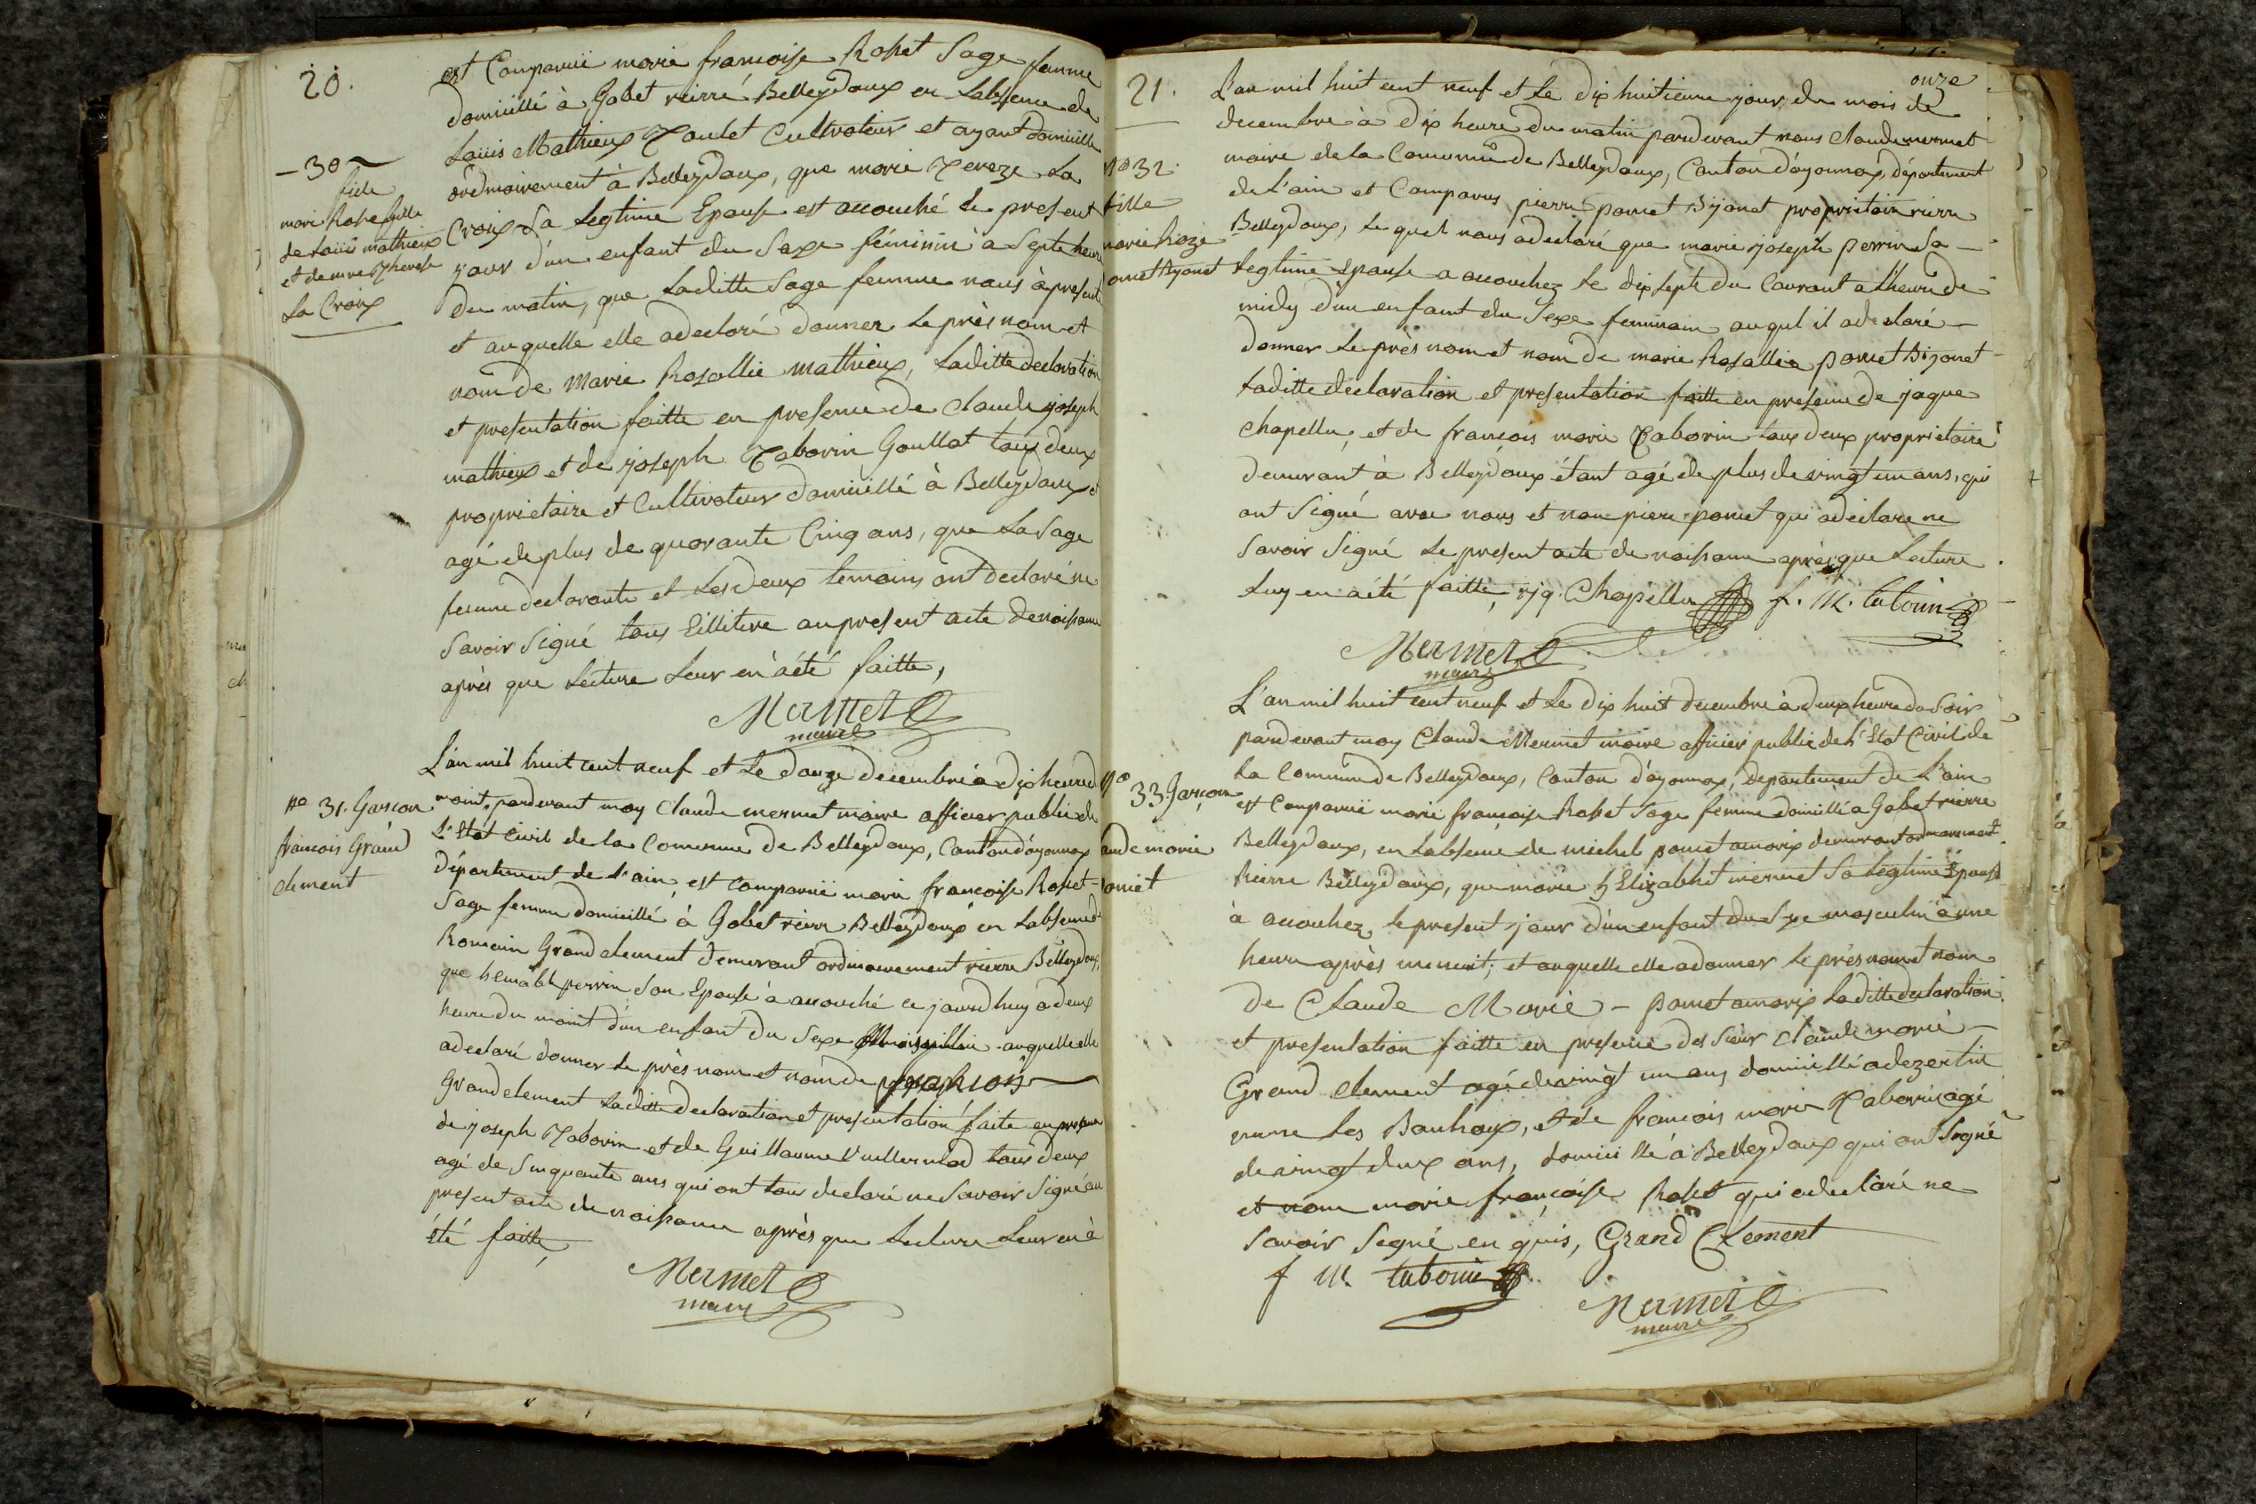 20.
est Comparuë marie francoise Rosset Sage femme
domicillé à Gobet rierre Belleydoux en Labsence de
Loüis Mathieux Taulet Cultivateur et ayant domicille
ordinairement à Belleydoux, que marie Tereze La
Croix Sa Legtime Epouse est accouché le present
jour d'un enfant du Sexe féminin à Septe heure
du matin, que Laditte Sage femme nous à presente
et auquelle elle adeclaré donner Le près nom et
nom de Marie Rosallie Mathieux, Laditte declaration
et presentation faitte en presence de Claude joseph
mathieux et de joseph Taborin Goullat tous deux
proprietaire et Cultivateur domicillé à Belleydoux et
agé de plus de quarante Cinq ans, que La Sage
femme declarante et Les deux temoins ont declaré ne
Savoir Signé tous Eillitere au present acte de naissance
après que Lecture Leur en àété faitte,
Mermet
maire
- 30 -
fille
marie Rose fille
de Loüis mathieux
et de marie Therese
La Croix
L'an mil huit cent neuf et Le douze decembre à dix heure du
matin, pardevant moy Claude mermet maire officier public de
L'Etat Civil de la Commune de Belleydoux, Canton d'oyonnax
Département de L'ain, est comparuë marie francoise Rosset
Sage femme domicillé à Gobet rierre Belleydoux en Labsence de
Romain Grandclement demeurant ordinairement rierre Belleydoux,
que perrin Son Epouse à accouché ce jourdhuy a deux
heure du matin d'un enfant du Sexe Masqullin auquelle elle
adeclaré donner Le près nom et nom de francois
Grandclement Laditte declaration et presentation faite en presence
de joseph Taborin et de Guillaume Vuillermod tous deux
agé de Sinquante ans qui ont tous declaré ne Savoir Signé au
present acte de naissance après que Lecture Leur en à
été faitte,
Mermet
maire
no 31. Garcon
francois Grand
clement
21.
onze
L'an mil huit cent neuf et Le dix huitieme jour du mois de
decembre à dix heure du matin pardevant nous Claude mermet
maire de la Commune de Belleydoux, Canton d'oyonnax, département
de L'ain et Comparus pierre pomet Bijonet proprietaire rierre
Belleydoux, Le quel nous adeclaré que marie joseph perrin Sa
Legtime Epouse a accouchez Le dix septe du Courant a L'heure de
midy d'un enfant du Sexe feminain auqul il adeclaré
donner Le près nom et nom de marie Rosallie pomet Bijonet
Laditte declaration et presentation faitte en présence de jaque
Chapellu, et de francois marie Taborin tous deux proprietaire
demeurant à Belleydoux étant agé de plus de vingt un ans, qui
ont Signé avec nous et non piere pomet qui adeclare ne
Savoir Signé Le present acte de naissance après que Lecture
Luy en àété faitte, jq. Chapellu f. m. tabourin
Mermet
maire
No 32.
fille
marie Roze
pomet Bijonet
L'an mil huit cent neuf et Le dix huit decembre à deux heure du Soir
pardevant moy Claude Mermet maire officier public de L'Etat Civil de
La Commune de Belleydoux, Canton d'oyonnax, departement de L'ain
est Comparuë marie francoise Rosset Sage femme domicillé a Gobet rierre
Belleydoux, en Labsence de michel pomet amorix demeurant ordinairement
Rierre Belleydoux, que marie Elizabhet mermet Sa Leghime Epouse
à accouchez le present jour d'un enfant du Sexe masculin à une
heure après menuit, et auquelle elle adonner Le près nom et nom
de Claude Marie - pomet amorix Laditte declaration
et presentation faitte en presence des Sieur Claude marie
Grand Clement agé de vingt un ans domicillé a dezertin
rierre Les Bouhoux, et de francois marie Taborin agé
de vingt deux ans, domicillé à Belleydoux qui ont Signé
et non marie françoise Rosset qui adeclaré ne
Savoir Signé en quis, Grand Clement
f m tabourin
Mermet
maire
No 33. Garçon
Claude marie
pomet